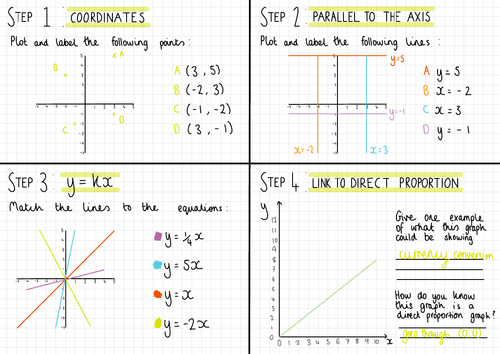 STEP 1 COORDINATES
Plot and label the following points :
A (3, 5)
B (-2, 3)
C (-1, -2)
D (3, -1)
A
B
C
D
STEP 2 PARALLEL TO THE AXIS
Plot and label the following lines :
y=5
A y = 5
B x = -2
C x = 3
D y = -1
y=-1
x=-2
x=3
STEP 3 y = kx
Match the lines to the equations :
y = 1/4 x
y = 5x
y = x
y = -2x
STEP 4 LINK TO DIRECT PROPORTION
y
12
11
10
9
8
7
6
5
4
3
2
1
0
0 1 2 3 4 5 6 7 8 9 10
x
Give one example
of what this graph
could be showing
currency conversion
How do you know
this graph is a
direct proportion graph?
goes through (0,0)